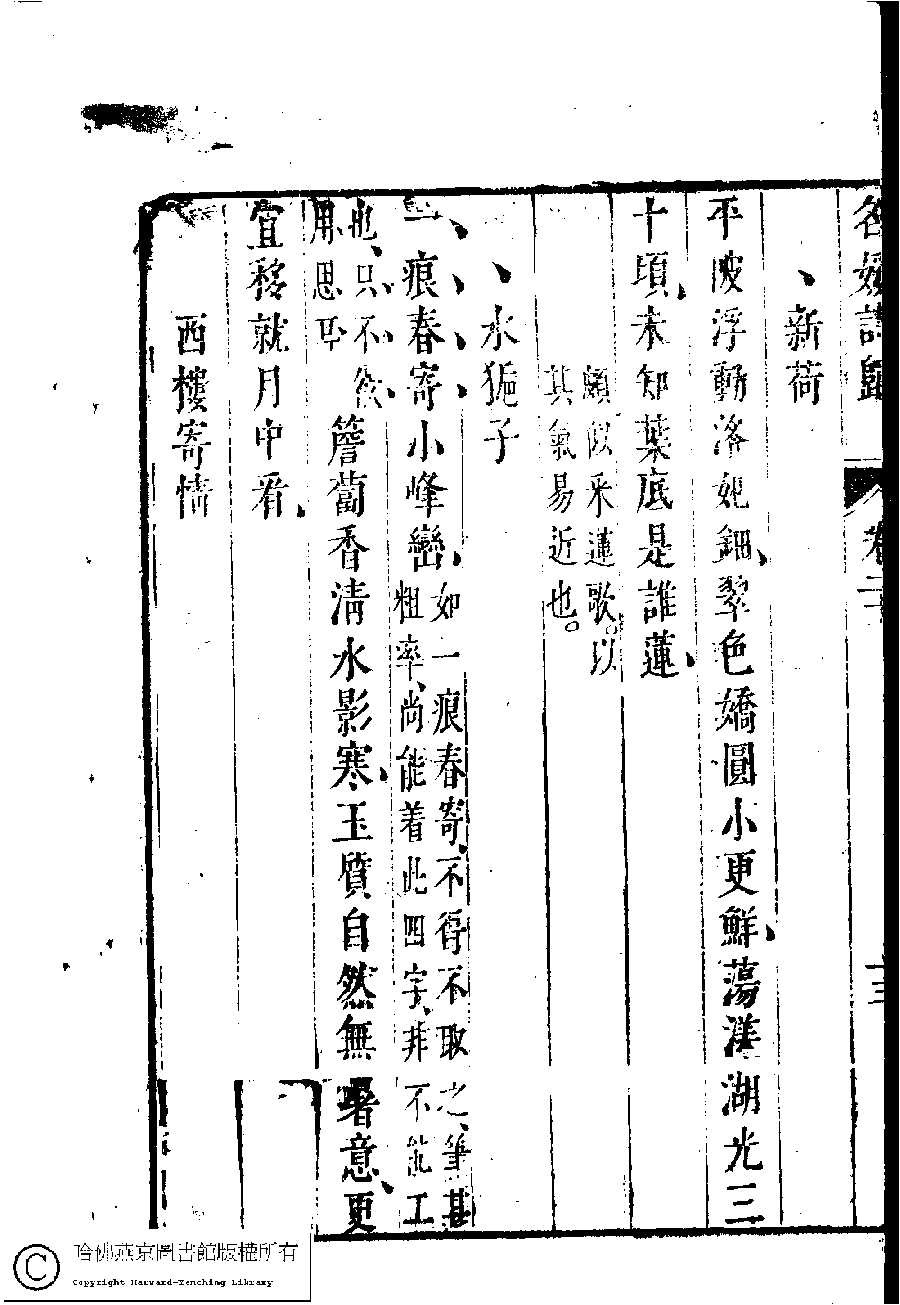 名媛詩歸 卷二 十三
新荷
平陂浮動洛妃鈿、翠色嬌圓小更鮮、蕩漾湖光三
十頃、未知葉底是誰蓮、
頗似采蓮歌。以
其氣易近也。
水梔子
一痕春寄小峰巒、
如一痕春寄、不得不取之、筆甚
粗率、尚能着此四字、非不能工
也、只不欲
用思耳
簷蔔香清水影寒、玉質自然無暑意、更
宜移就月中看、
西樓寄情
哈佛燕京圖書館版權所有
Copyright Harvard-Yenching Library